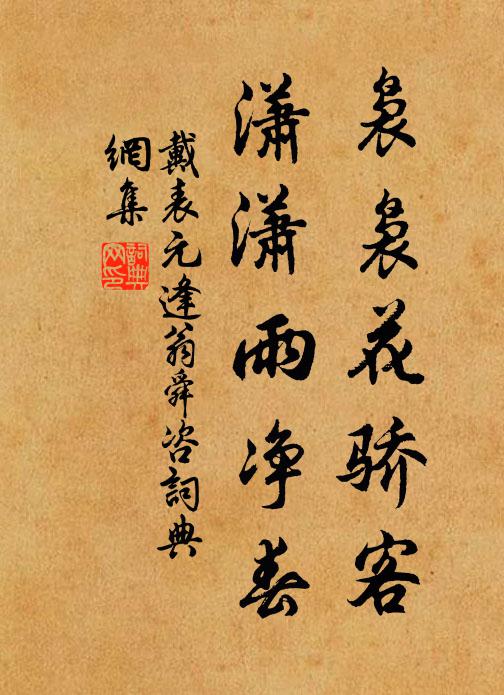 袅袅花骄客
潇潇雨净春
戴表元逢翁舜咨詞典
網集
詞典
网印